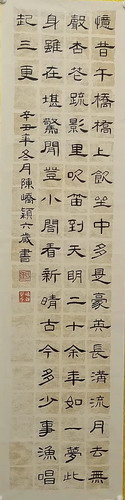 憶昔午橋橋上飲坐中多是豪英長溝流月去無
聲杏花疏影里吹笛到天明二十余年如一夢此
身雖在堪驚閒登小閣看新晴古今多少事漁唱
起三更
辛丑年冬月陳嶠穎六歲書